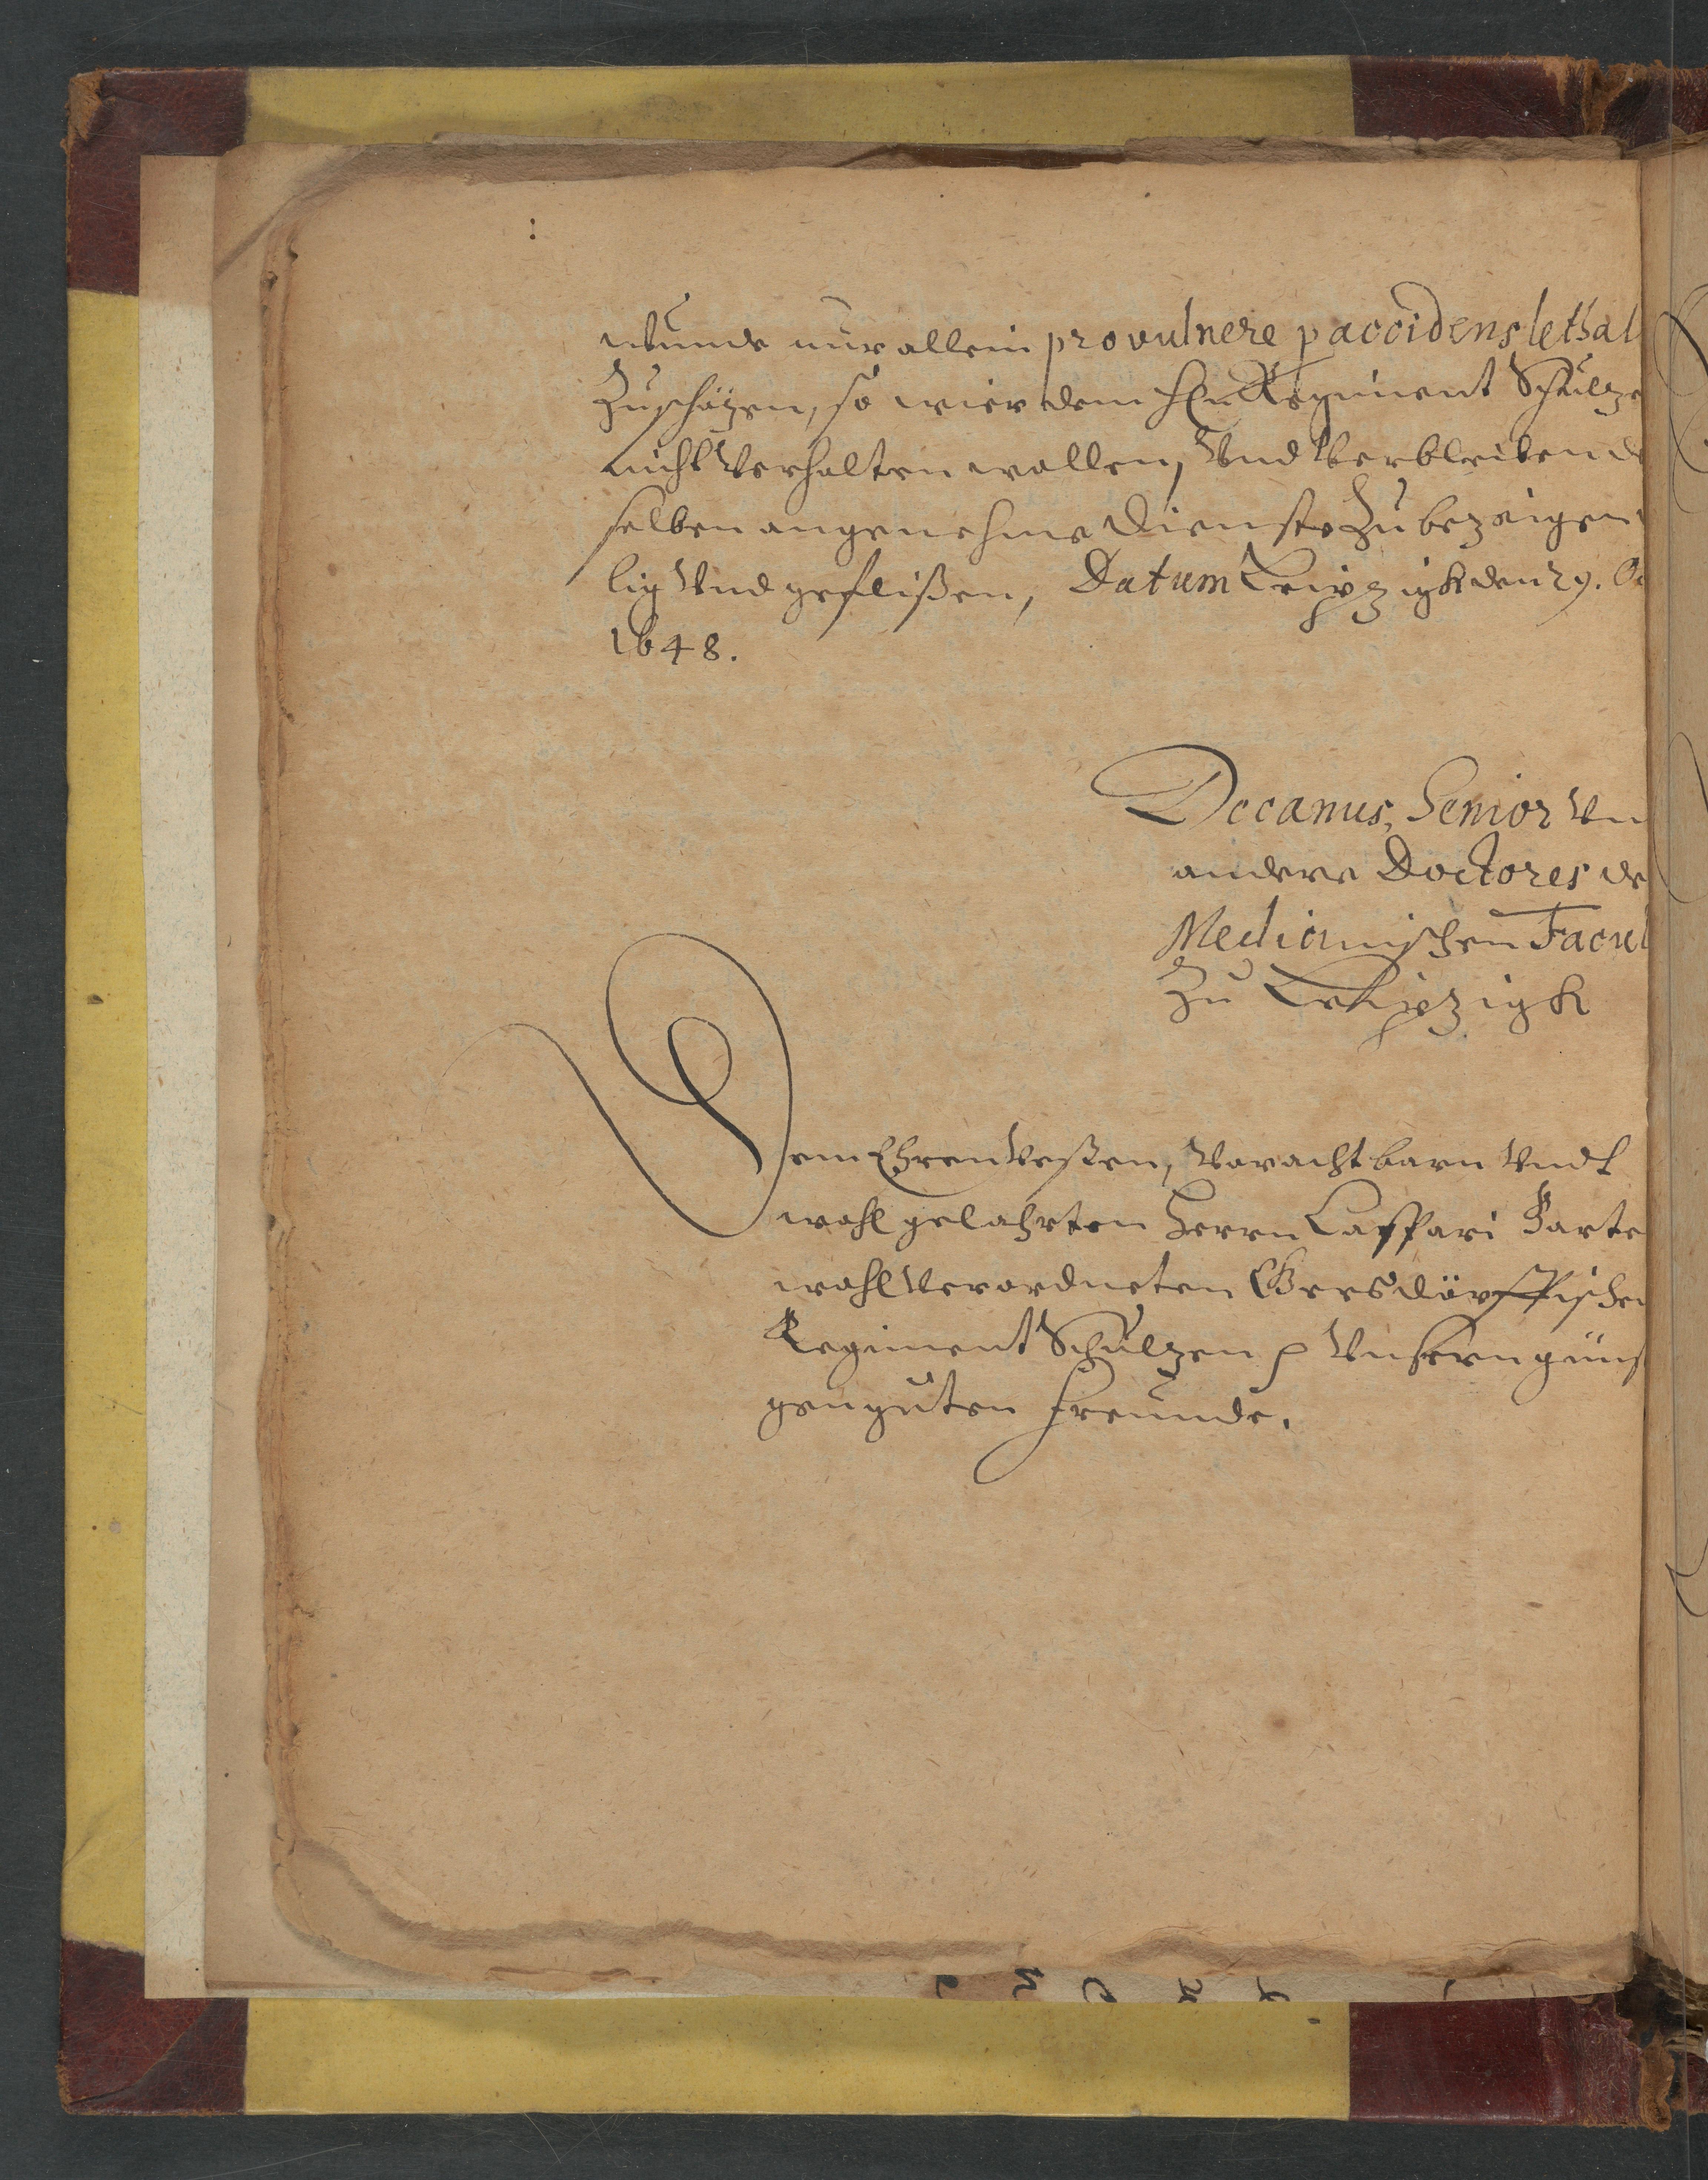 wunde nur allein pro vulnere p accidens lethal
Zuschäzen, so wier dem H. Regiment Schulze
nicht Verhalten wollen, Vnd Verbleiben de
selben angenehme Dienste Zubezeigen
lig Vnd geflißen, Datum Leipzigk den 29. Oc
1648.
Decanus, Senior Vn
andere Doctores de
Medicinischen Facul
Zu Leipzigk
Dem EhrenVesten, Vorachtbarn Vndt
wohlgelahrten Herrn Caspari Barte
wohlVerordneten Gersdörffischen
Regiment Schulzen p Vnsern güns
gen guten Freunde.